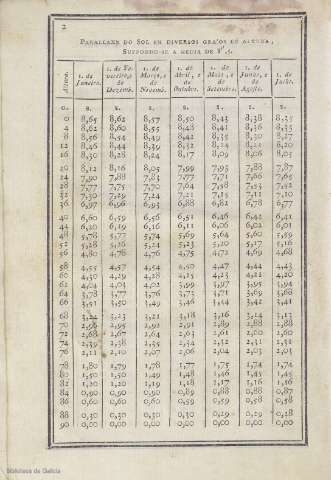 2
PARALLAXE DO SOL EM DIVERSOS GRA'OS DE ALTURA,
SUPPONDO-SE A MEDIA DE 8",5.
Altura. 1. de Janeiro. 1. de Fevereiro, e Dezemb. 1. de Março, e Novemb. 1. de Abril, e Outubro. 1. de Maio, e Setembro. 1. de Junho, e Agosto. 1. de Julho.
G. S. S. S. S. S. S. S.
0 8,65 8,62 8,57 8,50 8,43 8,38 8,35
4 8,62 8,60 8,55 8,48 8,41 8,36 8,33
8 8,56 8,54 8,49 8,42 8,35 8,30 8,27
12 8,46 8,44 8,39 8,32 8,24 8,20
16 8,30 8,28 8,24 8,17 8,09 8,06 8,05
20 8,12 8,16 8,05 7,99 7,93 7,88 7,87
24 7,90 7,88 7,83 7,77 7,71 7,66 7,65
28 7,77 7,75 7,70 7,64 7,58 7,53 7,52
32 7,30 7,29 7,24 7,21 7,15 7,11 7,10
36 6,97 6,96 6,93 6,88 6,82 6,78 6,77
40 6,60 6,59 6,56 6,51 6,46 6,42 6,41
44 6,20 6,19 6,16 6,11 6,06 6,02 6,01
48 5,78 5,77 5,74 5,69 5,64 5,60 5,59
52 5,28 5,26 5,24 5,23 5,20 5,17 5,16
56 4,80 4,78 4,76 4,75 4,72 4,69 4,68
58 4,55 4,57 4,54 4,50 4,47 4,44 4,43
60 4,30 4,29 4,28 4,25 4,23 4,21 4,20
62 4,04 4,03 4,02 3,99 3,97 3,95 3,94
64 3,78 3,77 3,76 3,73 3,71 3,69 3,68
66 3,51 3,50 3,49 3,46 3,44 3,42 3,41
68 3,24 3,23 3,21 3,18 3,16 3,14 3,13
70 2,96 2,95 2,92 2,91 2,89 2,88 2,88
72 2,68 2,67 2,64 2,63 2,61 2,60 2,60
74 2,39 2,38 2,35 2,34 2,32 2,31 2,31
76 2,11 2,10 2,07 2,06 2,04 2,03 2,03
78 1,80 1,79 1,78 1,77 1,75 1,74 1,74
80 1,50 1,50 1,49 1,48 1,46 1,45
82 1,20 1,20 1,19 1,18 1,17 1,16 1,16
84 0,90 0,90 0,90 0,89 0,88 0,88 0,87
86 0,60 0,60 0,60 0,59 0,59 0,58 0,58
88 0,30 0,30 0,30 0,30 0,29 0,29 0,28
90 0,00 0,00 0,00 0,00 0,00 0,00 0,00
Biblioteca de Galicia